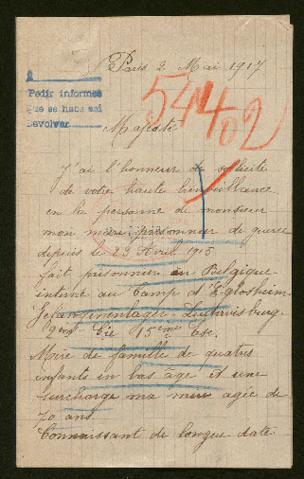 Paris 2 Mai 1917
Pedir informes
Que se haba así
Devolver
54402
Majesté
J'ai l'honneur de solicité
de votre haute bienveillance
en la personne de monsieur
mon mari prisonnier de guerre
depuis le 23 Avril 1915
fait prisonnier en Belgique
interné au Camp d'Eglosheim
Gefangenenlager Ludwisburg
2em Cie 15eme
Mère de famille de quatres
enfants en bas âge et une
surcharge ma mère agée de
70 ans.
Connaissant de longue date